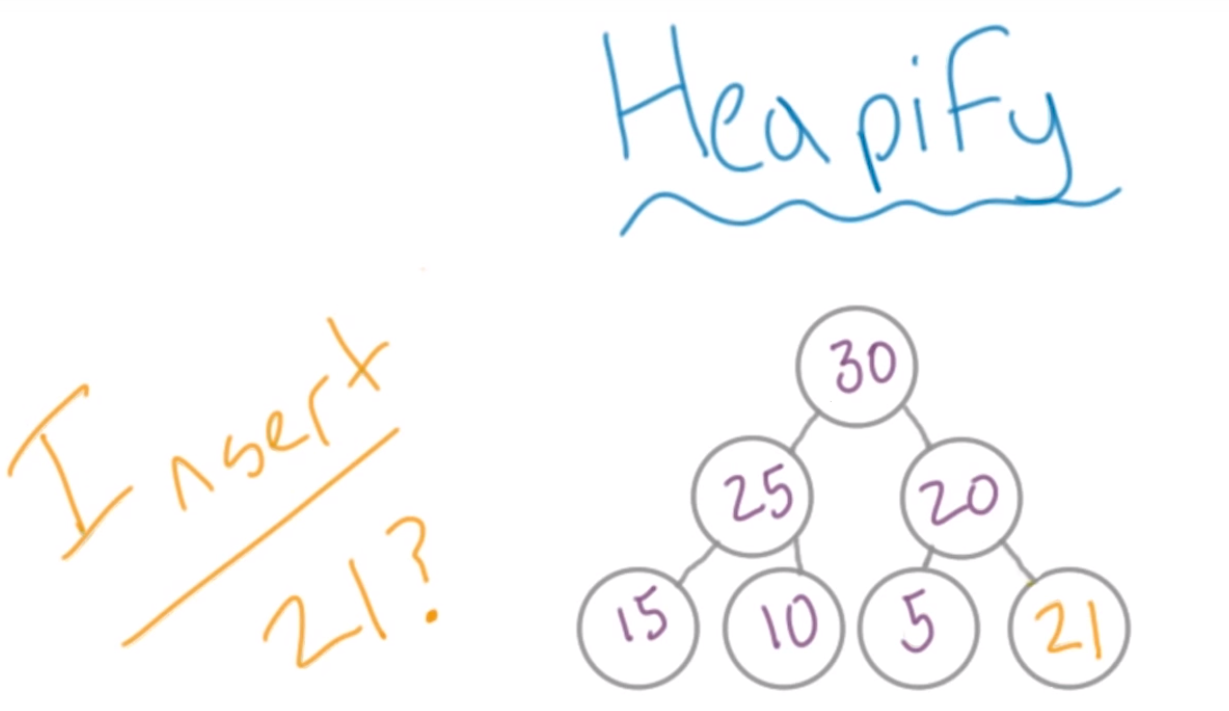 Heapify
Insert
21?
30
25 20
15 10 5 21